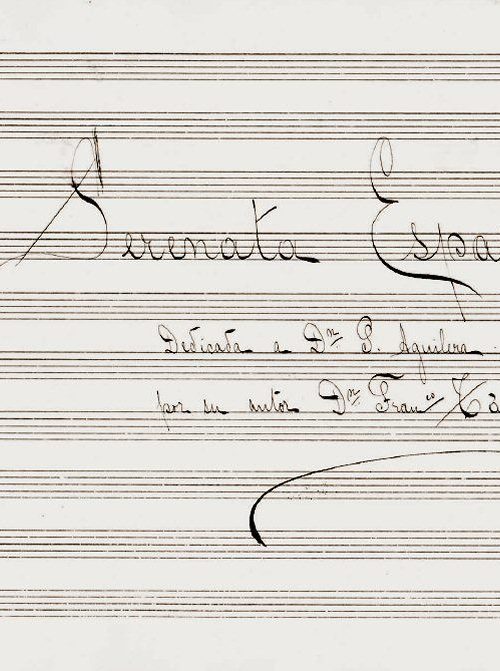 Serenata Espa
Dedicada a Dn. P. Aguilera.
por su autor Dn. Franco Tá